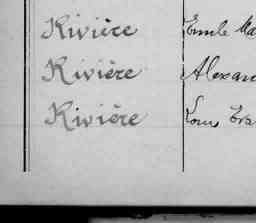 Rivière Emile Ma
Rivière Alexan
Rivière Louis Era